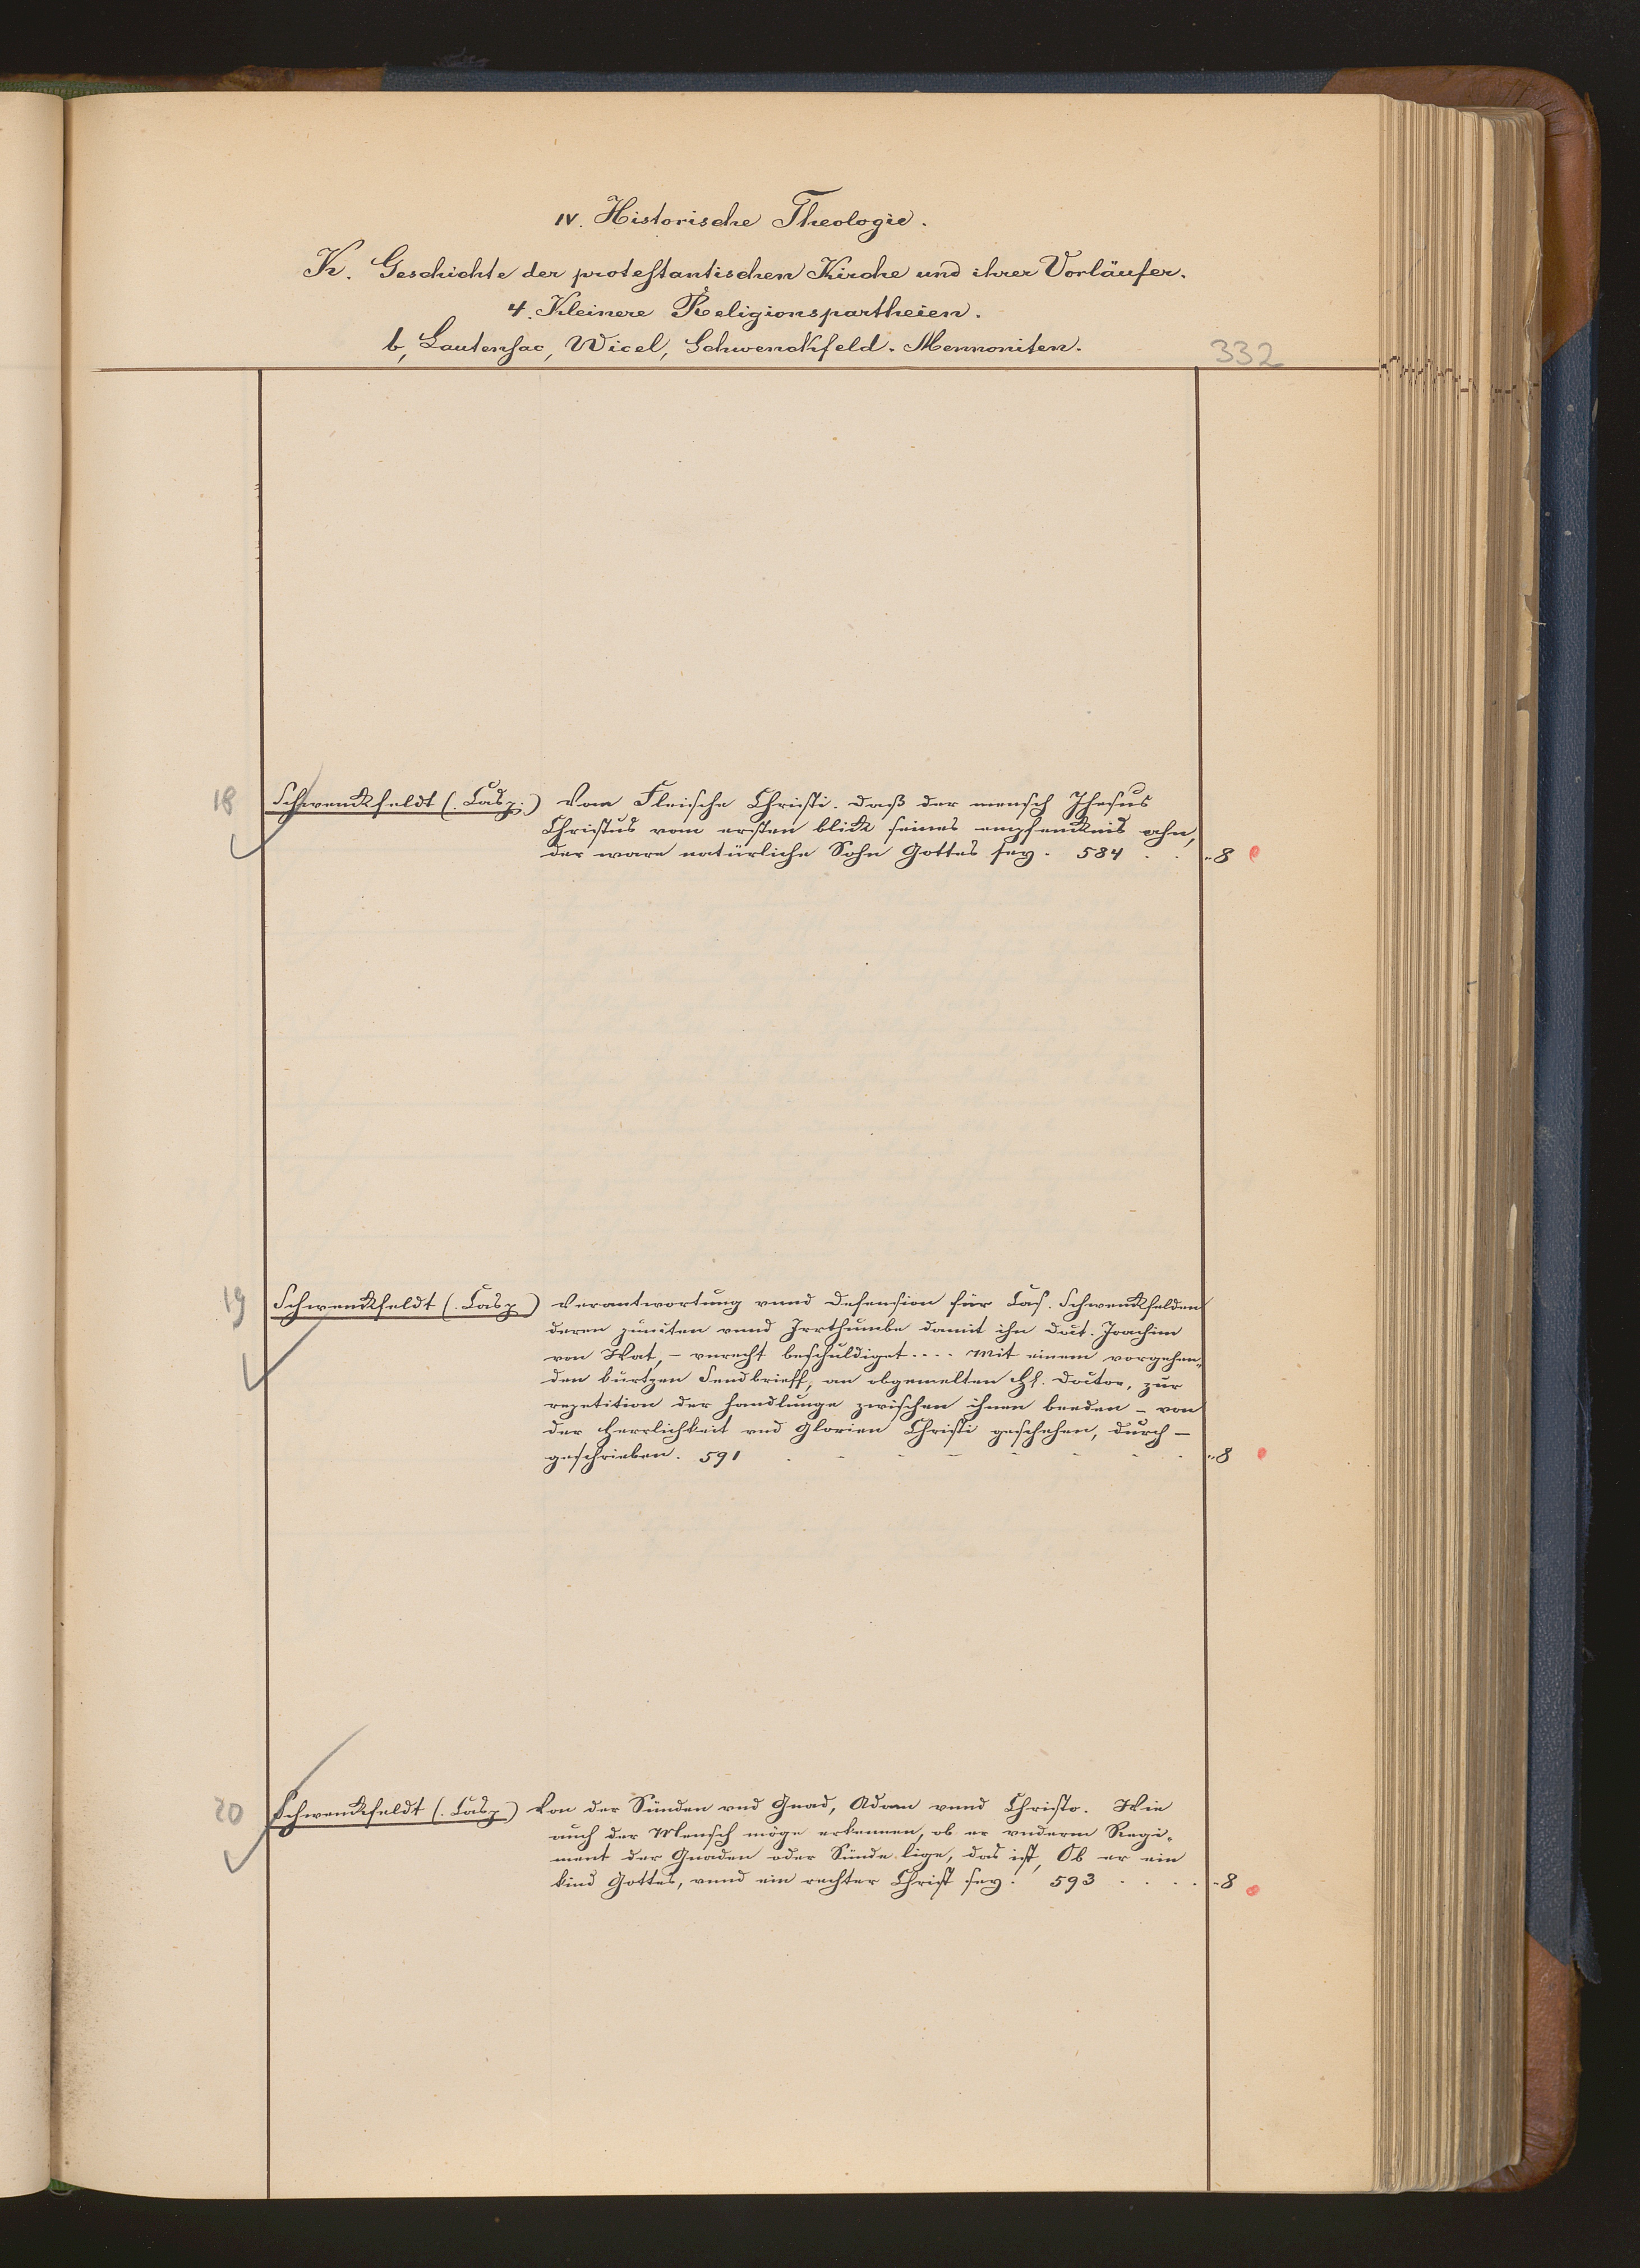 IV. Historische Theologie.
K. Geschichte der protestantischen Kirche und ihrer Vorläufer.
4. Kleinere Religionspartheien.
b, Lautensac, Wicel, Schwenckfeld. Mennoniten.
332
18 Schwenckfeldt (. Casp.) Vom Fleische Christi. daß der mensch Jhesus
Christus vom ersten blick seines empfencknis ahn,
der ware natürliche Sohn Gottes sey. 584 . . "8
19 Schwenckfeldt (. Casp) Verantwortung vnnd defension für Cas. Schwenckfelden
deren puncten vnnd Irrthumbe damit ihn Doct. Joachim
von Wat, – vnrecht beschuldiget.... Mit einem vorgehen-
den kurtzen Sendbrieff, an obgemelten Hl. Doctor, zur
repetition der handlunge zwischen ihnen beeden – von
der Herrlichkeit vnd Glorien Christi geschehen, durch –
geschrieben. 591 . - - - - - - . "8
20 Schwenckfeldt (. Casp) Von der Sünden vnd Gnad, Adam vnnd Christo. Wie
auch der Mensch möge erkennen, ob er vnderm Regi-
ment der Gnaden oder Sünde lige, das ist, Ob er ein
kind Gottes, vnnd ein rechter Christ sey. 593 . . . . "8